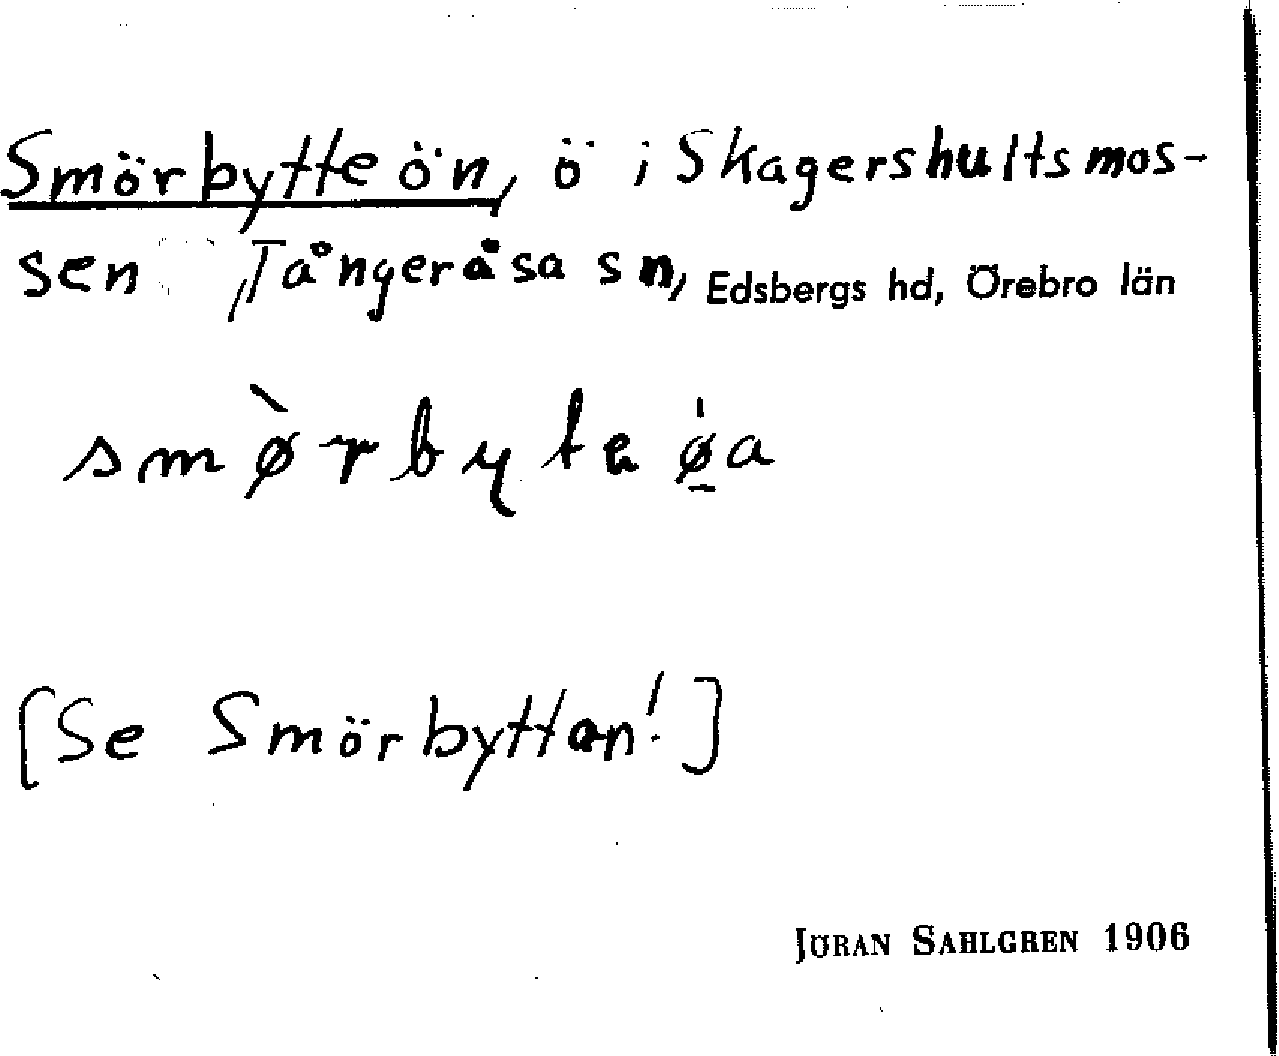 Smörbytteön, ö i Skagershultsmos-
sen, Tångeråsa sn, Edsbergs hd, Örebro län
smø̀rbyteø̠̍a
[Se Smörbyttan!]
JÖRAN SAHLGREN 1906